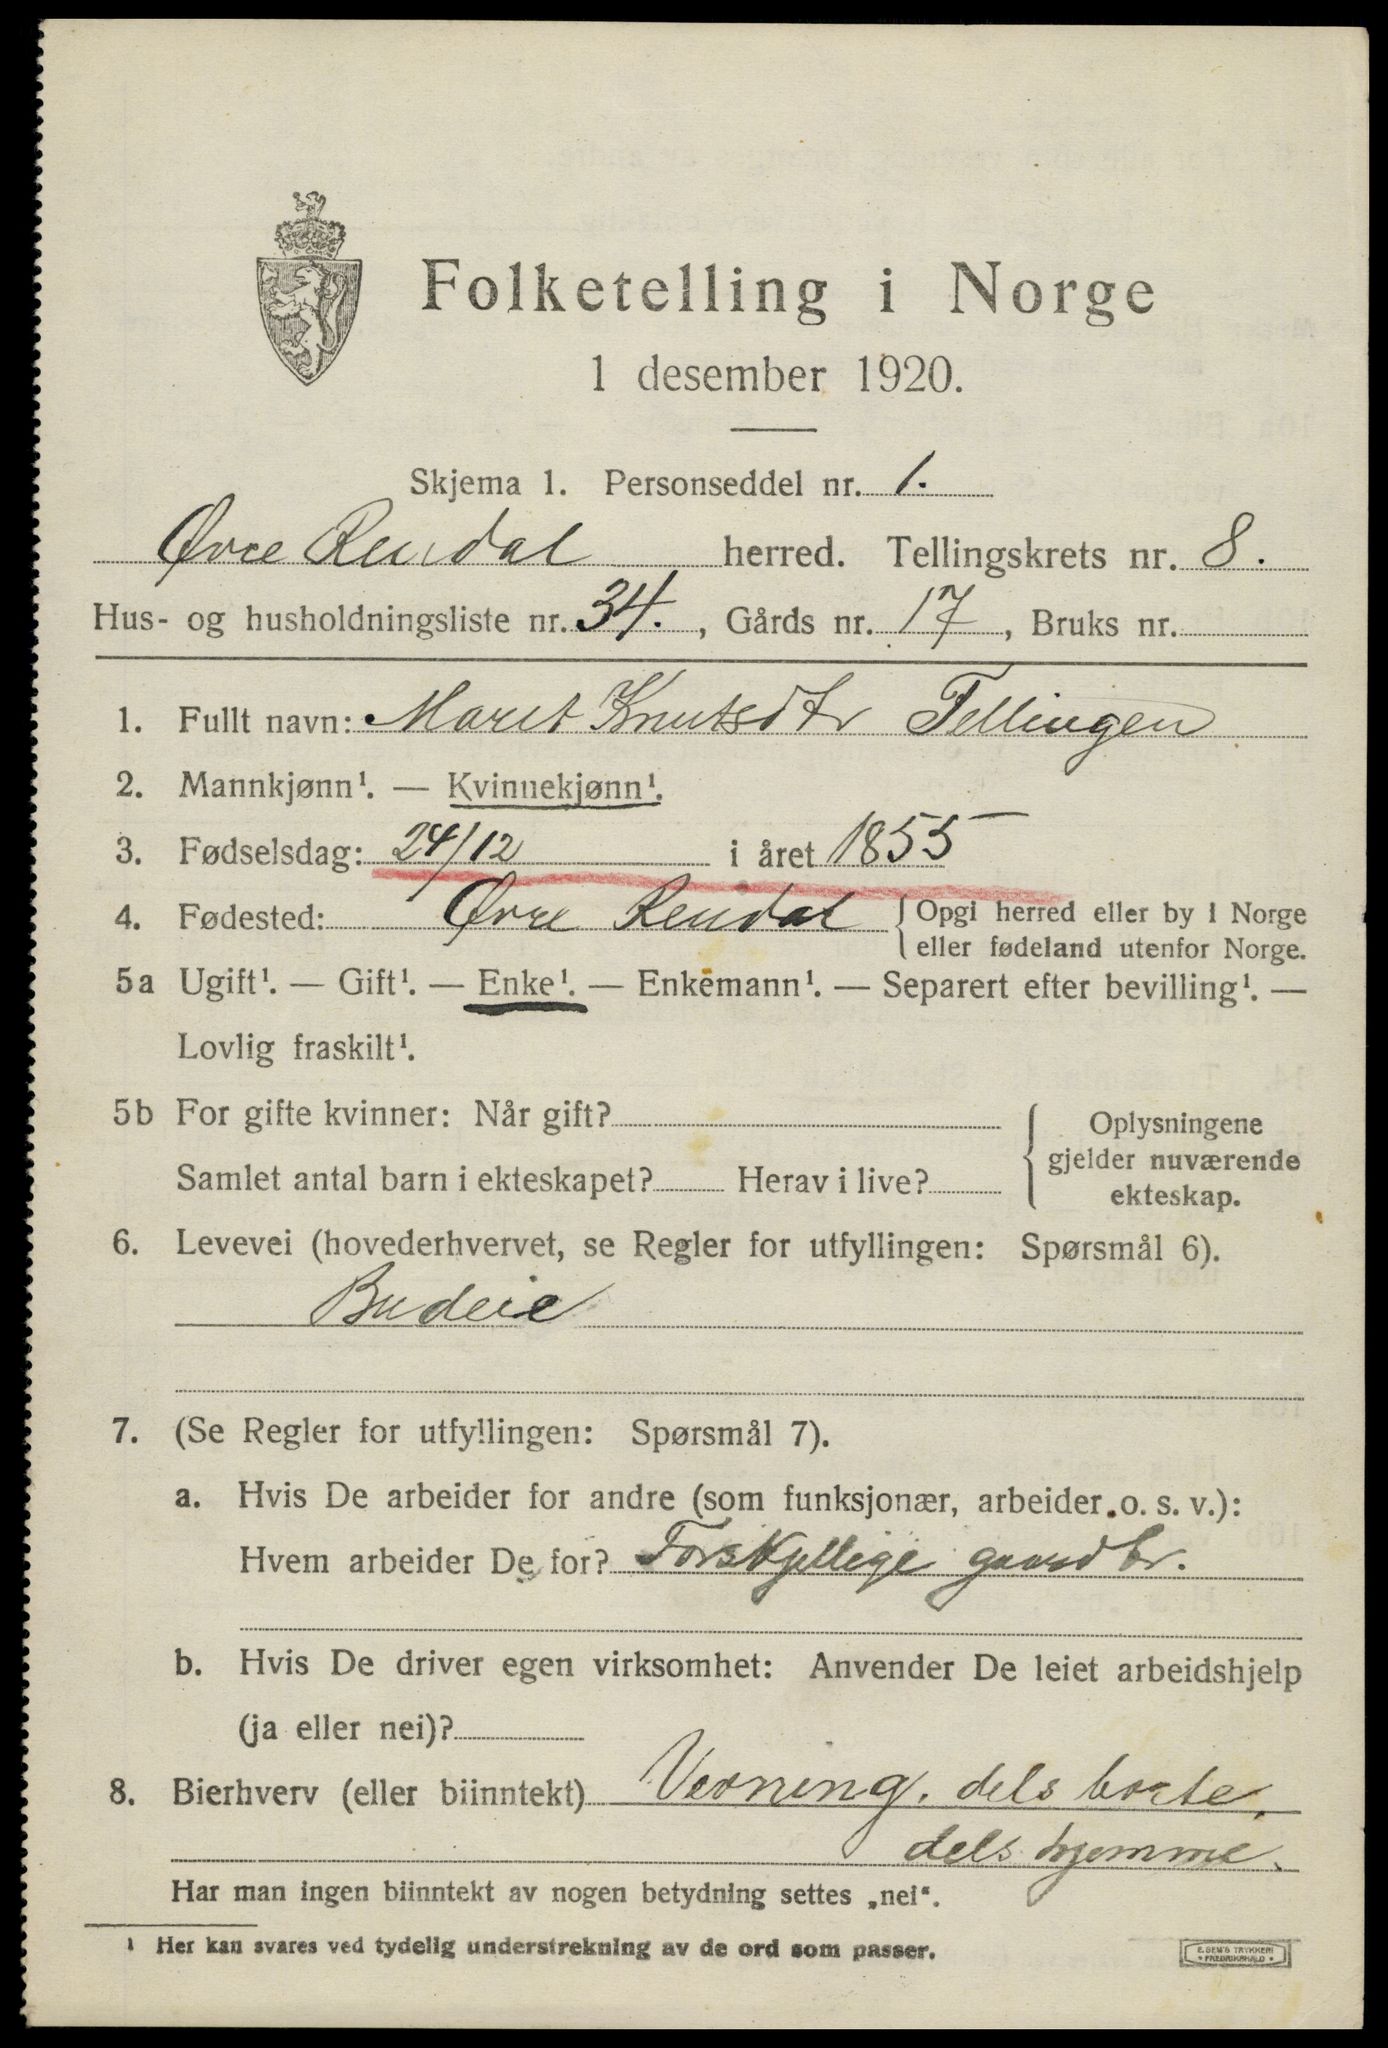 Folketelling i Norge
1 desember 1920.
Skjema 1. Personseddel nr. 1.
Øvre Rendal herred. Tellingskrets nr. 8.
Hus- og husholdningsliste nr. 34., Gårds nr. 17, Bruks nr.
1. Fullt navn: Maret Knutsdtr Fellingen
2. Mannkjønn¹. — Kvinnekjønn¹.
3. Fødselsdag: 24/12 i året 1855
4. Fødested: Øvre Rendal { Opgi herred eller by i Norge
eller fødeland utenfor Norge.
5a Ugift¹. — Gift¹. — Enke¹. — Enkemann¹. — Separert efter bevilling¹. —
Lovlig fraskilt¹.
5b For gifte kvinner: Når gift?
Samlet antal barn i ekteskapet? Herav i live?
{ Oplysningene
gjelder nuværende
ekteskap.
6. Levevei (hovederhvervet, se Regler for utfyllingen: Spørsmål 6).
Budeie
7. (Se Regler for utfyllingen: Spørsmål 7).
a. Hvis De arbeider for andre (som funksjonær, arbeider o. s. v.):
Hvem arbeider De for? Forskjellige gaardbr.
b. Hvis De driver egen virksomhet: Anvender De leiet arbeidshjelp
(ja eller nei)?
8. Bierhverv (eller biinntekt) Vævning. dels borte,
dels hjemme.
Har man ingen biinntekt av nogen betydning settes „nei“.
¹ Her kan svares ved tydelig understrekning av de ord som passer.
E. SEM'S TRYKKERI
• FREDRIKSHALD •